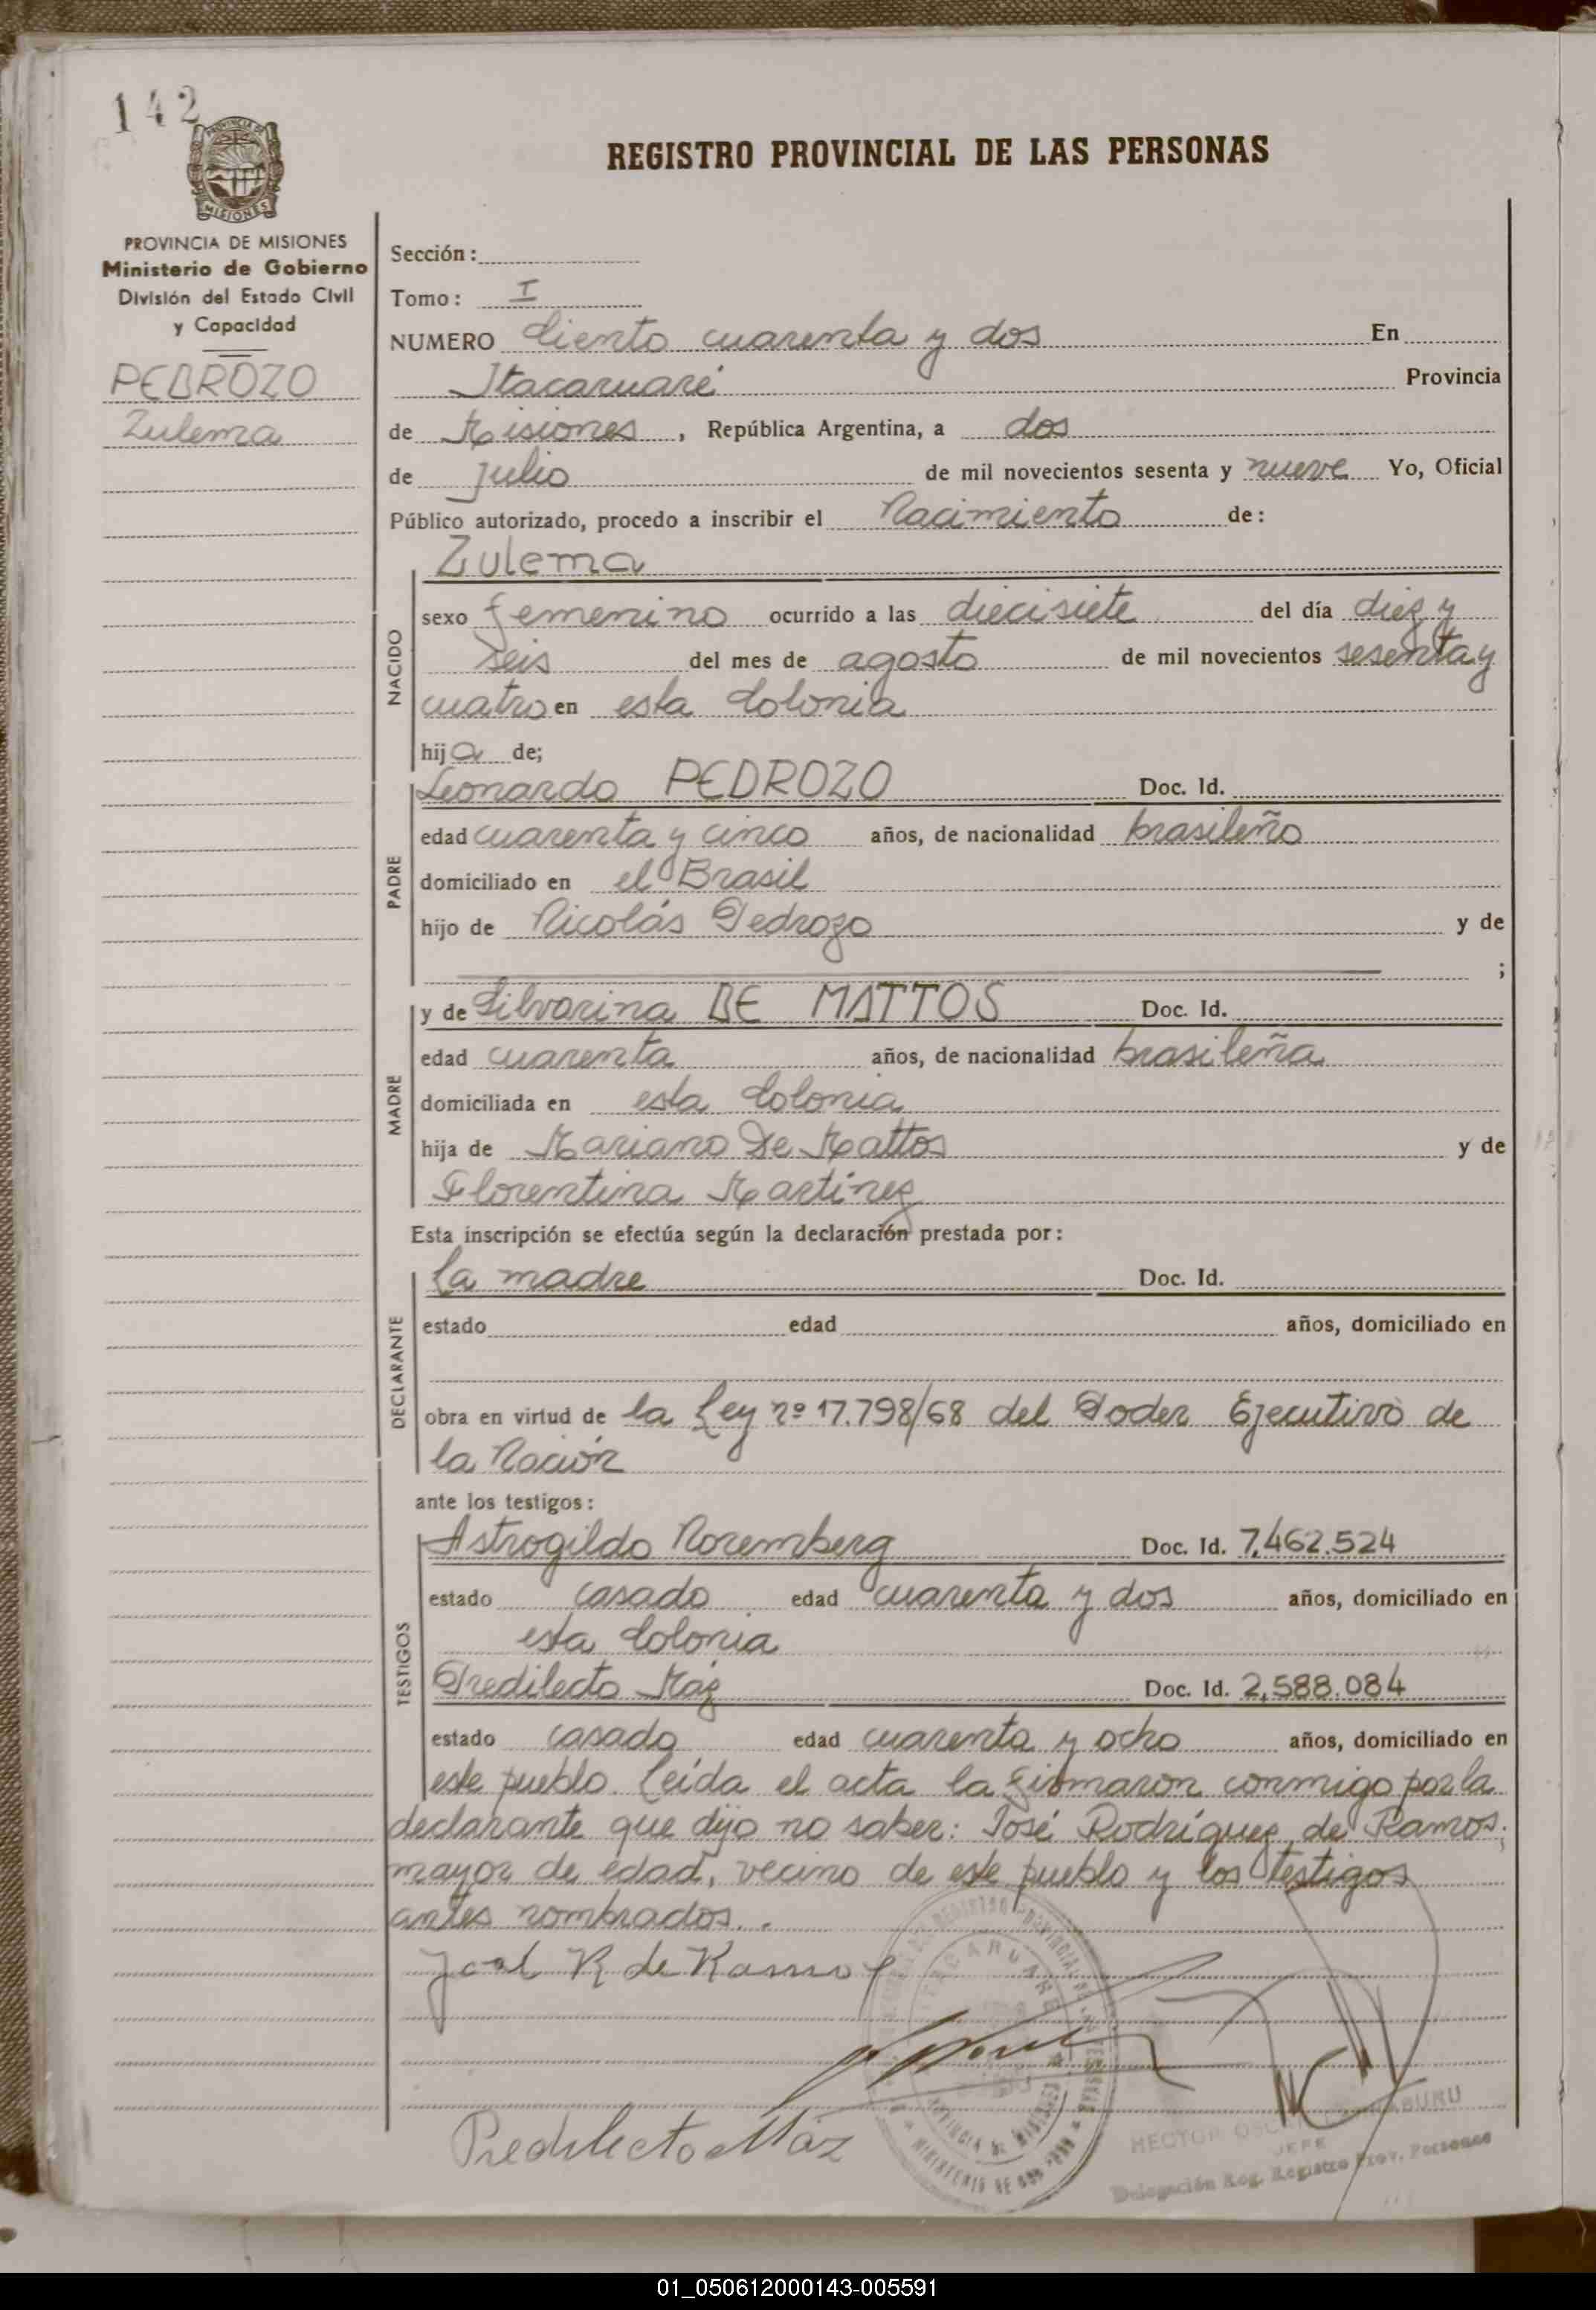 142
REGISTRO PROVINCIAL DE LAS PERSONAS
PROVINCIA DE MISIONES
Ministerio de Gobierno
División del Estado Civil
y Capacidad
PEDROZO
Zulema
Sección:
Tomo: I
NUMERO Ciento cuarenta y dos En
Itacaruaré Provincia
de Misiones, República Argentina, a dos
de julio de mil novecientos sesenta y nueve Yo, Oficial
Público autorizado, procedo a inscribir el Nacimiento de:
NACIDO
Zulema
sexo femenino ocurrido a las diecisiete del día diez y
seis del mes de agosto de mil novecientos sesenta y
cuatro en esta Colonia
hija de;
PADRE
Leonardo PEDROZO Doc. Id.
edad cuarenta y cinco años, de nacionalidad brasileño
domiciliado en el Brasil
hijo de Nicolás Pedrozo y de
;
MADRE
y de Silvarina DE MATTOS Doc. Id.
edad cuarenta años, de nacionalidad brasileña
domiciliada en esta Colonia
hija de Mariano De Mattos y de
Florentina Martínez
Esta inscripción se efectúa según la declaración prestada por:
DECLARANTE
la madre Doc. Id.
estado edad años, domiciliado en
obra en virtud de la Ley nº 17.798/68 del Poder Ejecutivo de
la Nación
ante los testigos:
TESTIGOS
Astrogildo Noremberg Doc. Id. 7.462.524
estado casado edad cuarenta y dos años, domiciliado en
esta Colonia
Predilecto Máz Doc. Id. 2.588.084
estado casado edad cuarenta y ocho años, domiciliado en
este pueblo. Leída el acta la firmaron conmigo por la
declarante que dijo no saber: José Rodríguez de Ramos,
mayor de edad, vecino de este pueblo y los testigos
antes nombrados.
José R de Ramos
Predilecto Máz
ITACARUARE
HECTOR
JEFE
Delegación Reg. Registro Prov. Personas
01_050612000143-005591